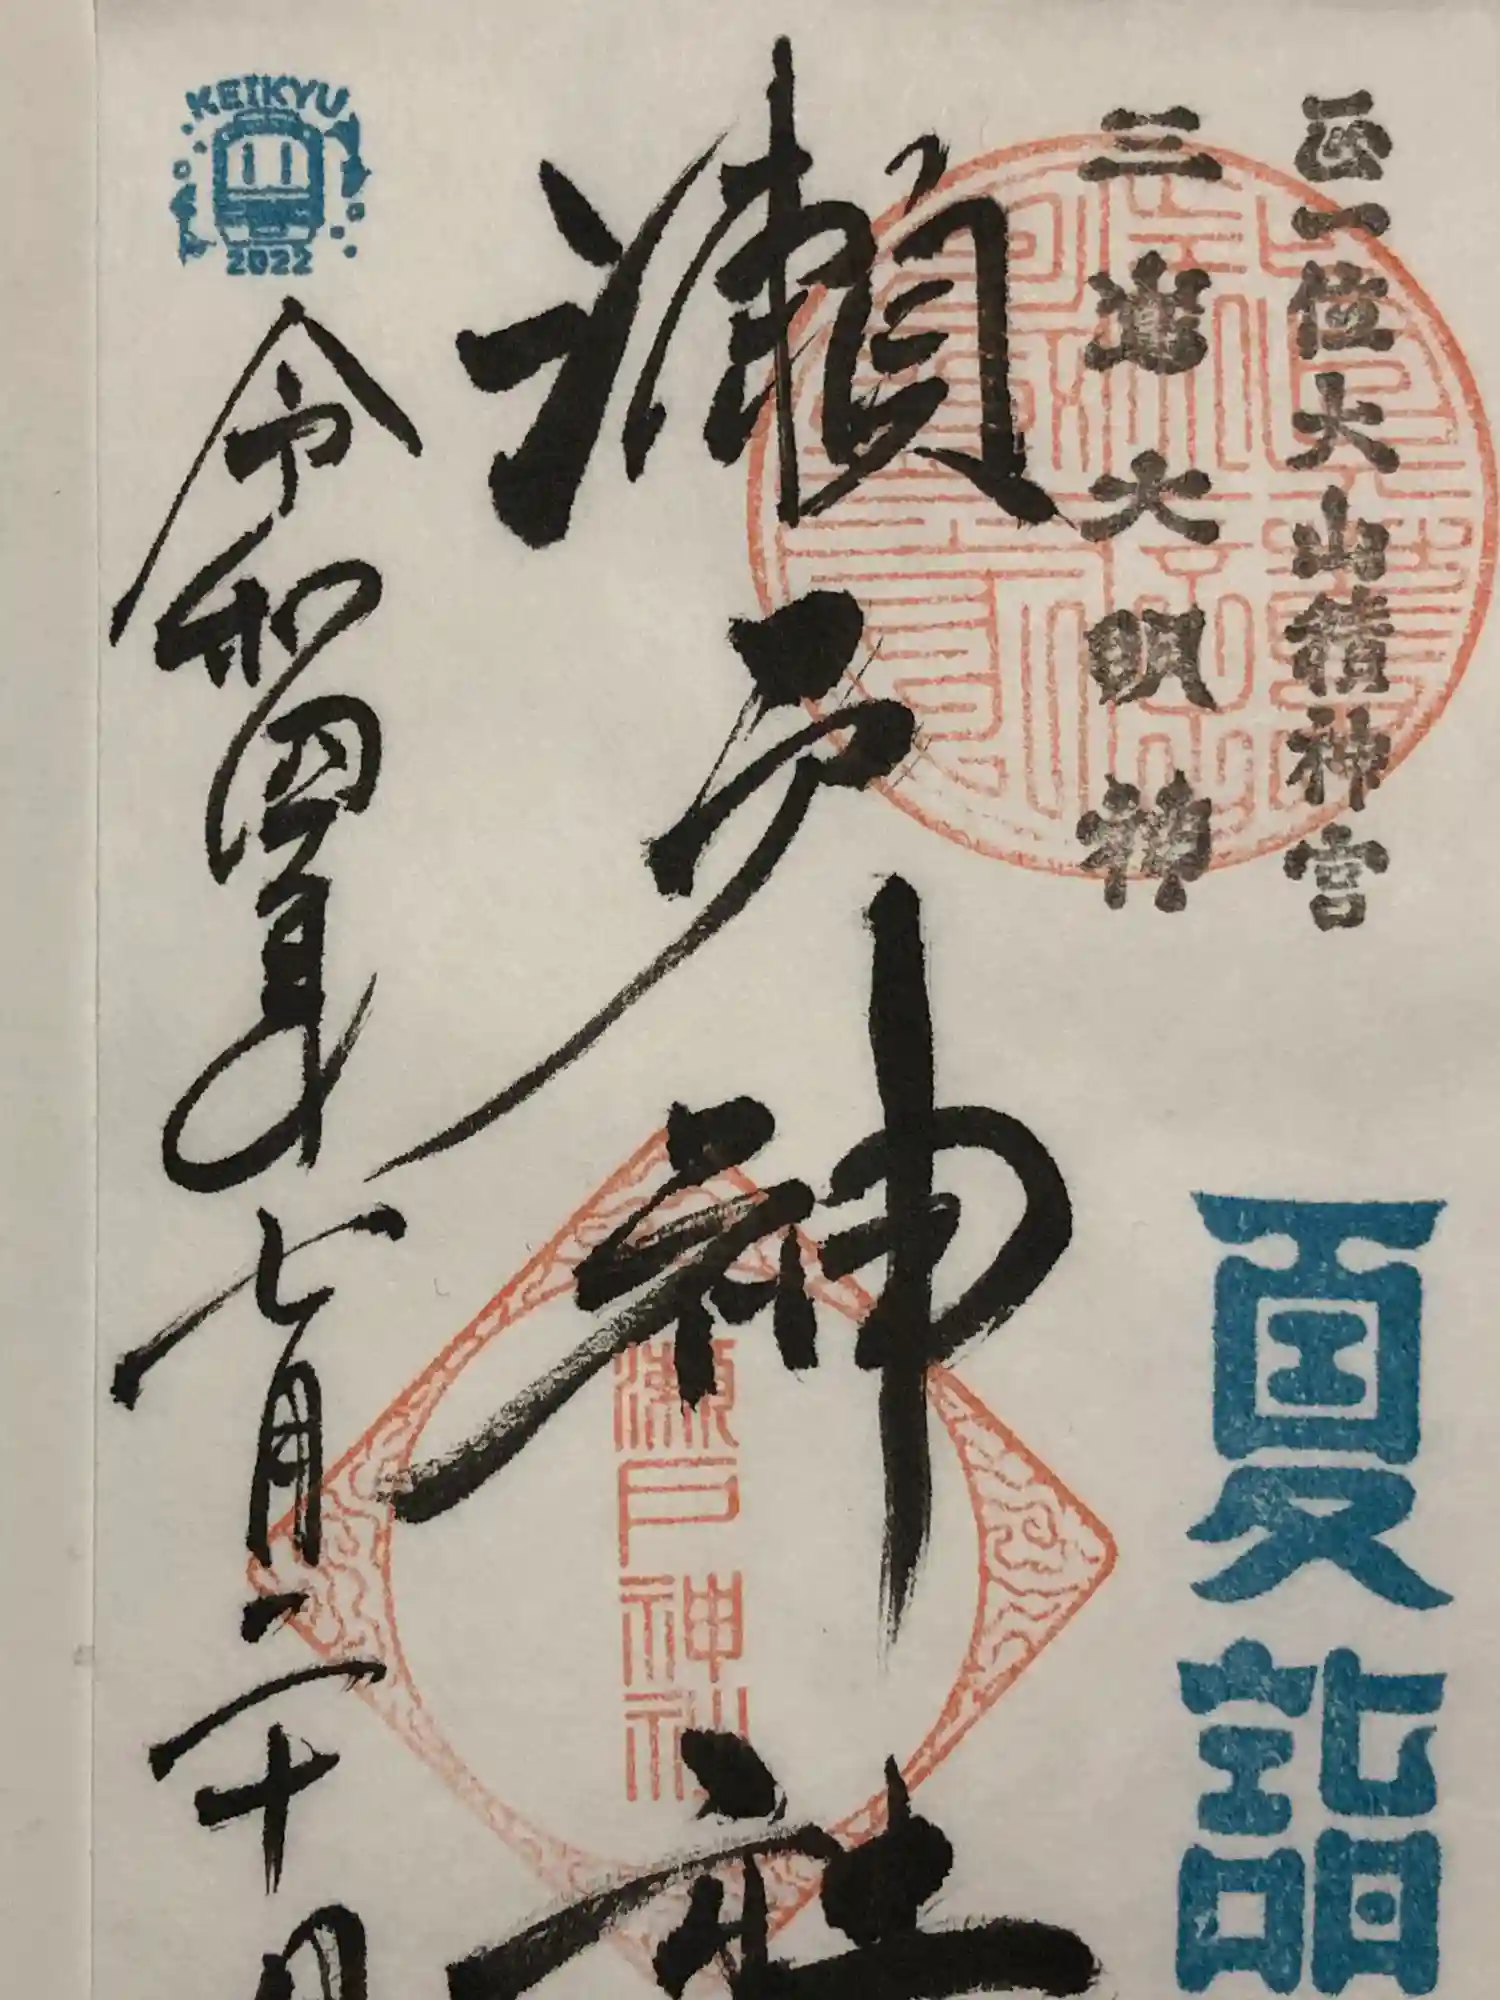 正一位大山積神宮
三島大明神
夏詣
瀬戸神社
瀬戸神社
KEIKYU
2022
令和四年七月二十日